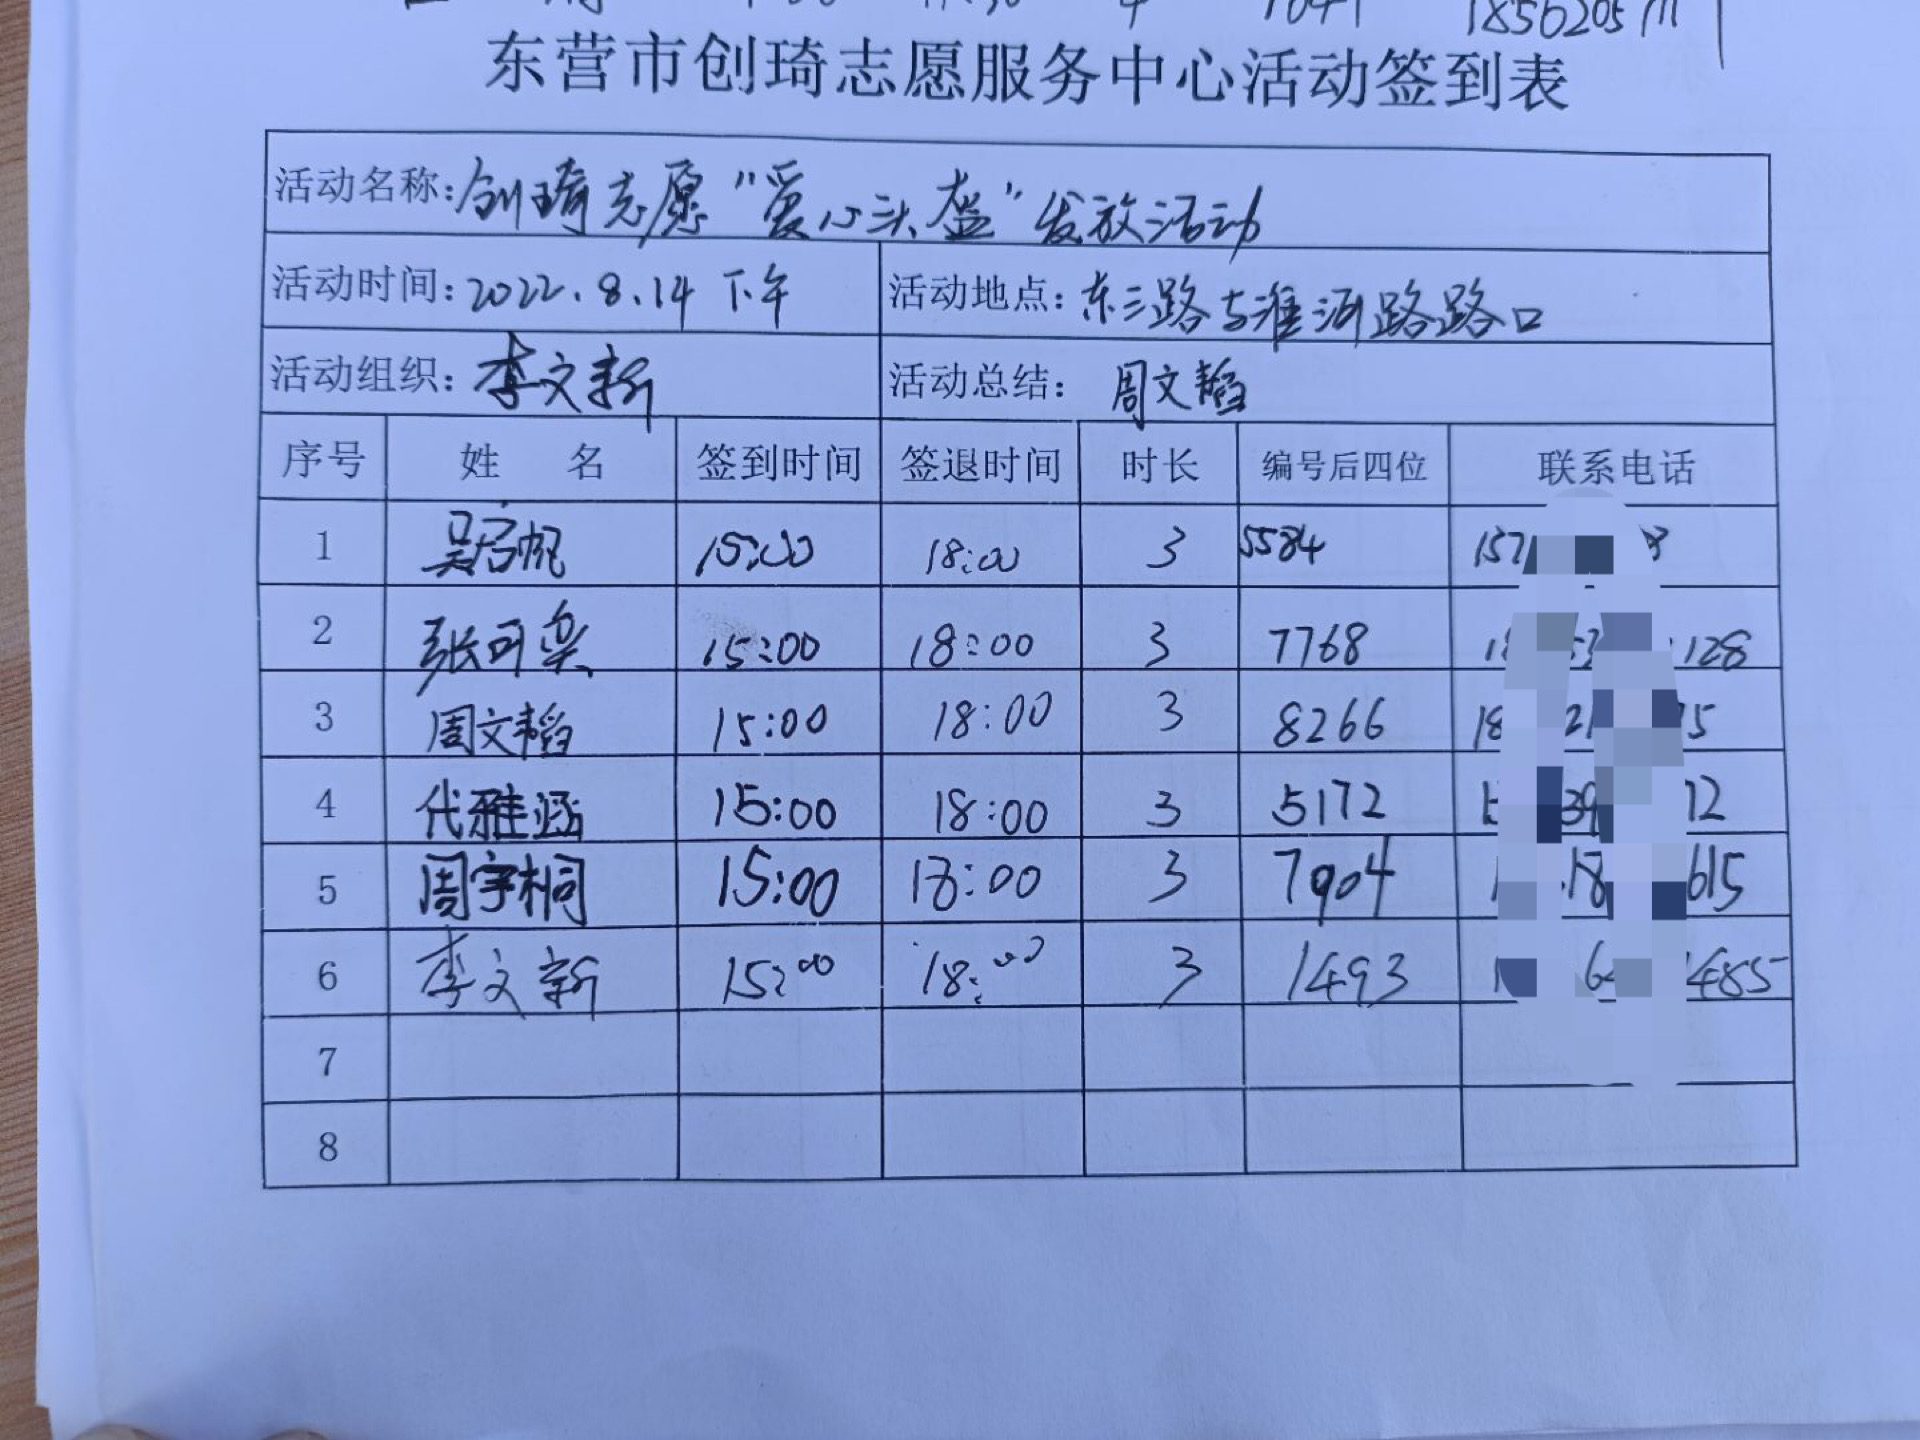 18562051711
东营市创琦志愿服务中心活动签到表
活动名称:创琦志愿“爱心头盔”发放活动
活动时间:2022.8.14 下午 活动地点:东三路与淮河路路口
活动组织:李文新 活动总结:周文韬
序号 姓 名 签到时间 签退时间 时长 编号后四位 联系电话
1 15:00 18:00 3 5584 157
2 张可奕 15:00 18:00 3 7768 128
3 周文韬 15:00 18:00 3 8266 18
4 代雅涵 15:00 18:00 3 5172 72
5 周宇桐 15:00 18:00 3 7904 615
6 李文新 15:00 18:00 3 1493 485
7
8